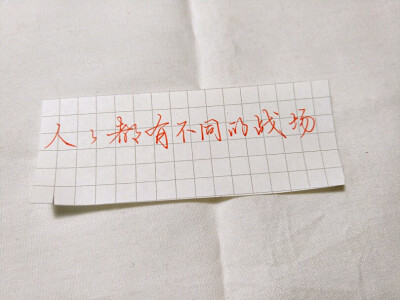 人々都有不同的战场